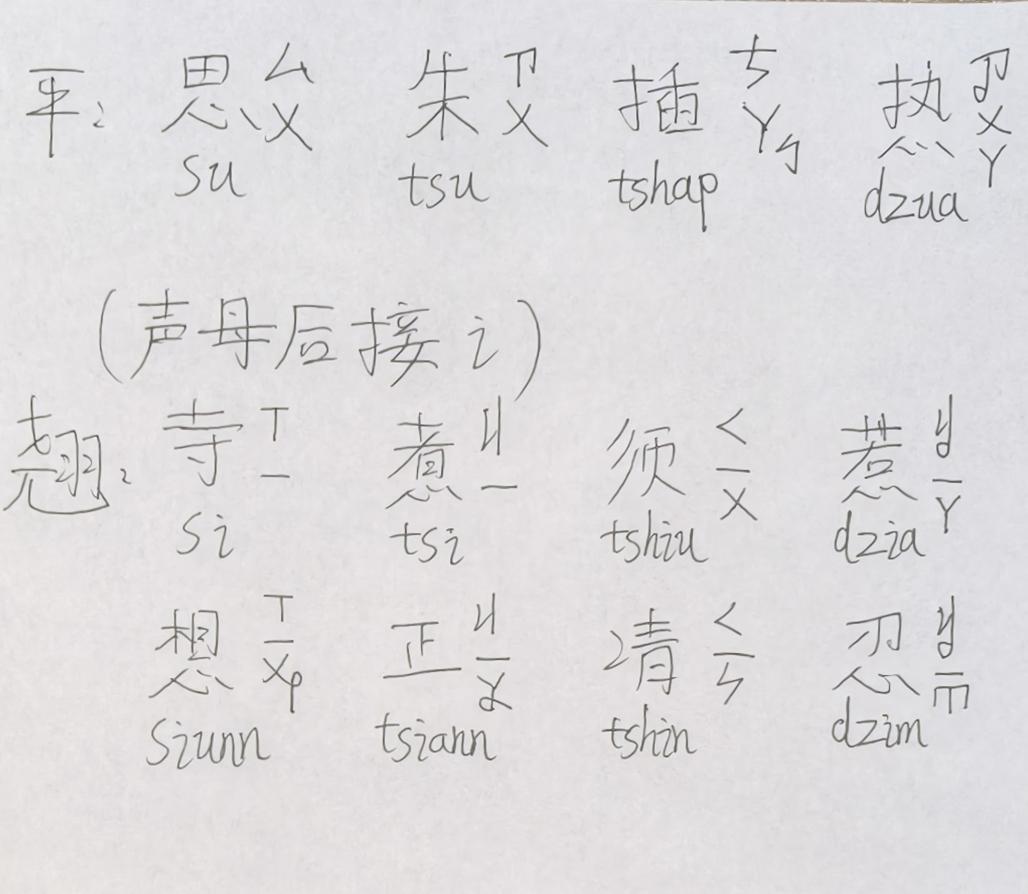 平: 思 ㄙㄨ 朱 ㄗㄨ 插 ㄘㄚㆴ 热 ㆡㄨㄚ
su tsu tshap dzua
(声母后接 i)
翘: 寺 ㄒㄧ 煮 ㄐㄧ 须 ㄑㄧㄨ 惹 ㆢㄧㄚ
si tsi tshiu dzia
想 ㄒㄧㆫ 正 ㄐㄧㆩ 凊 ㄑㄧㄣ 忍 ㆢㄧㆬ
siunn tsiann tshin dzim